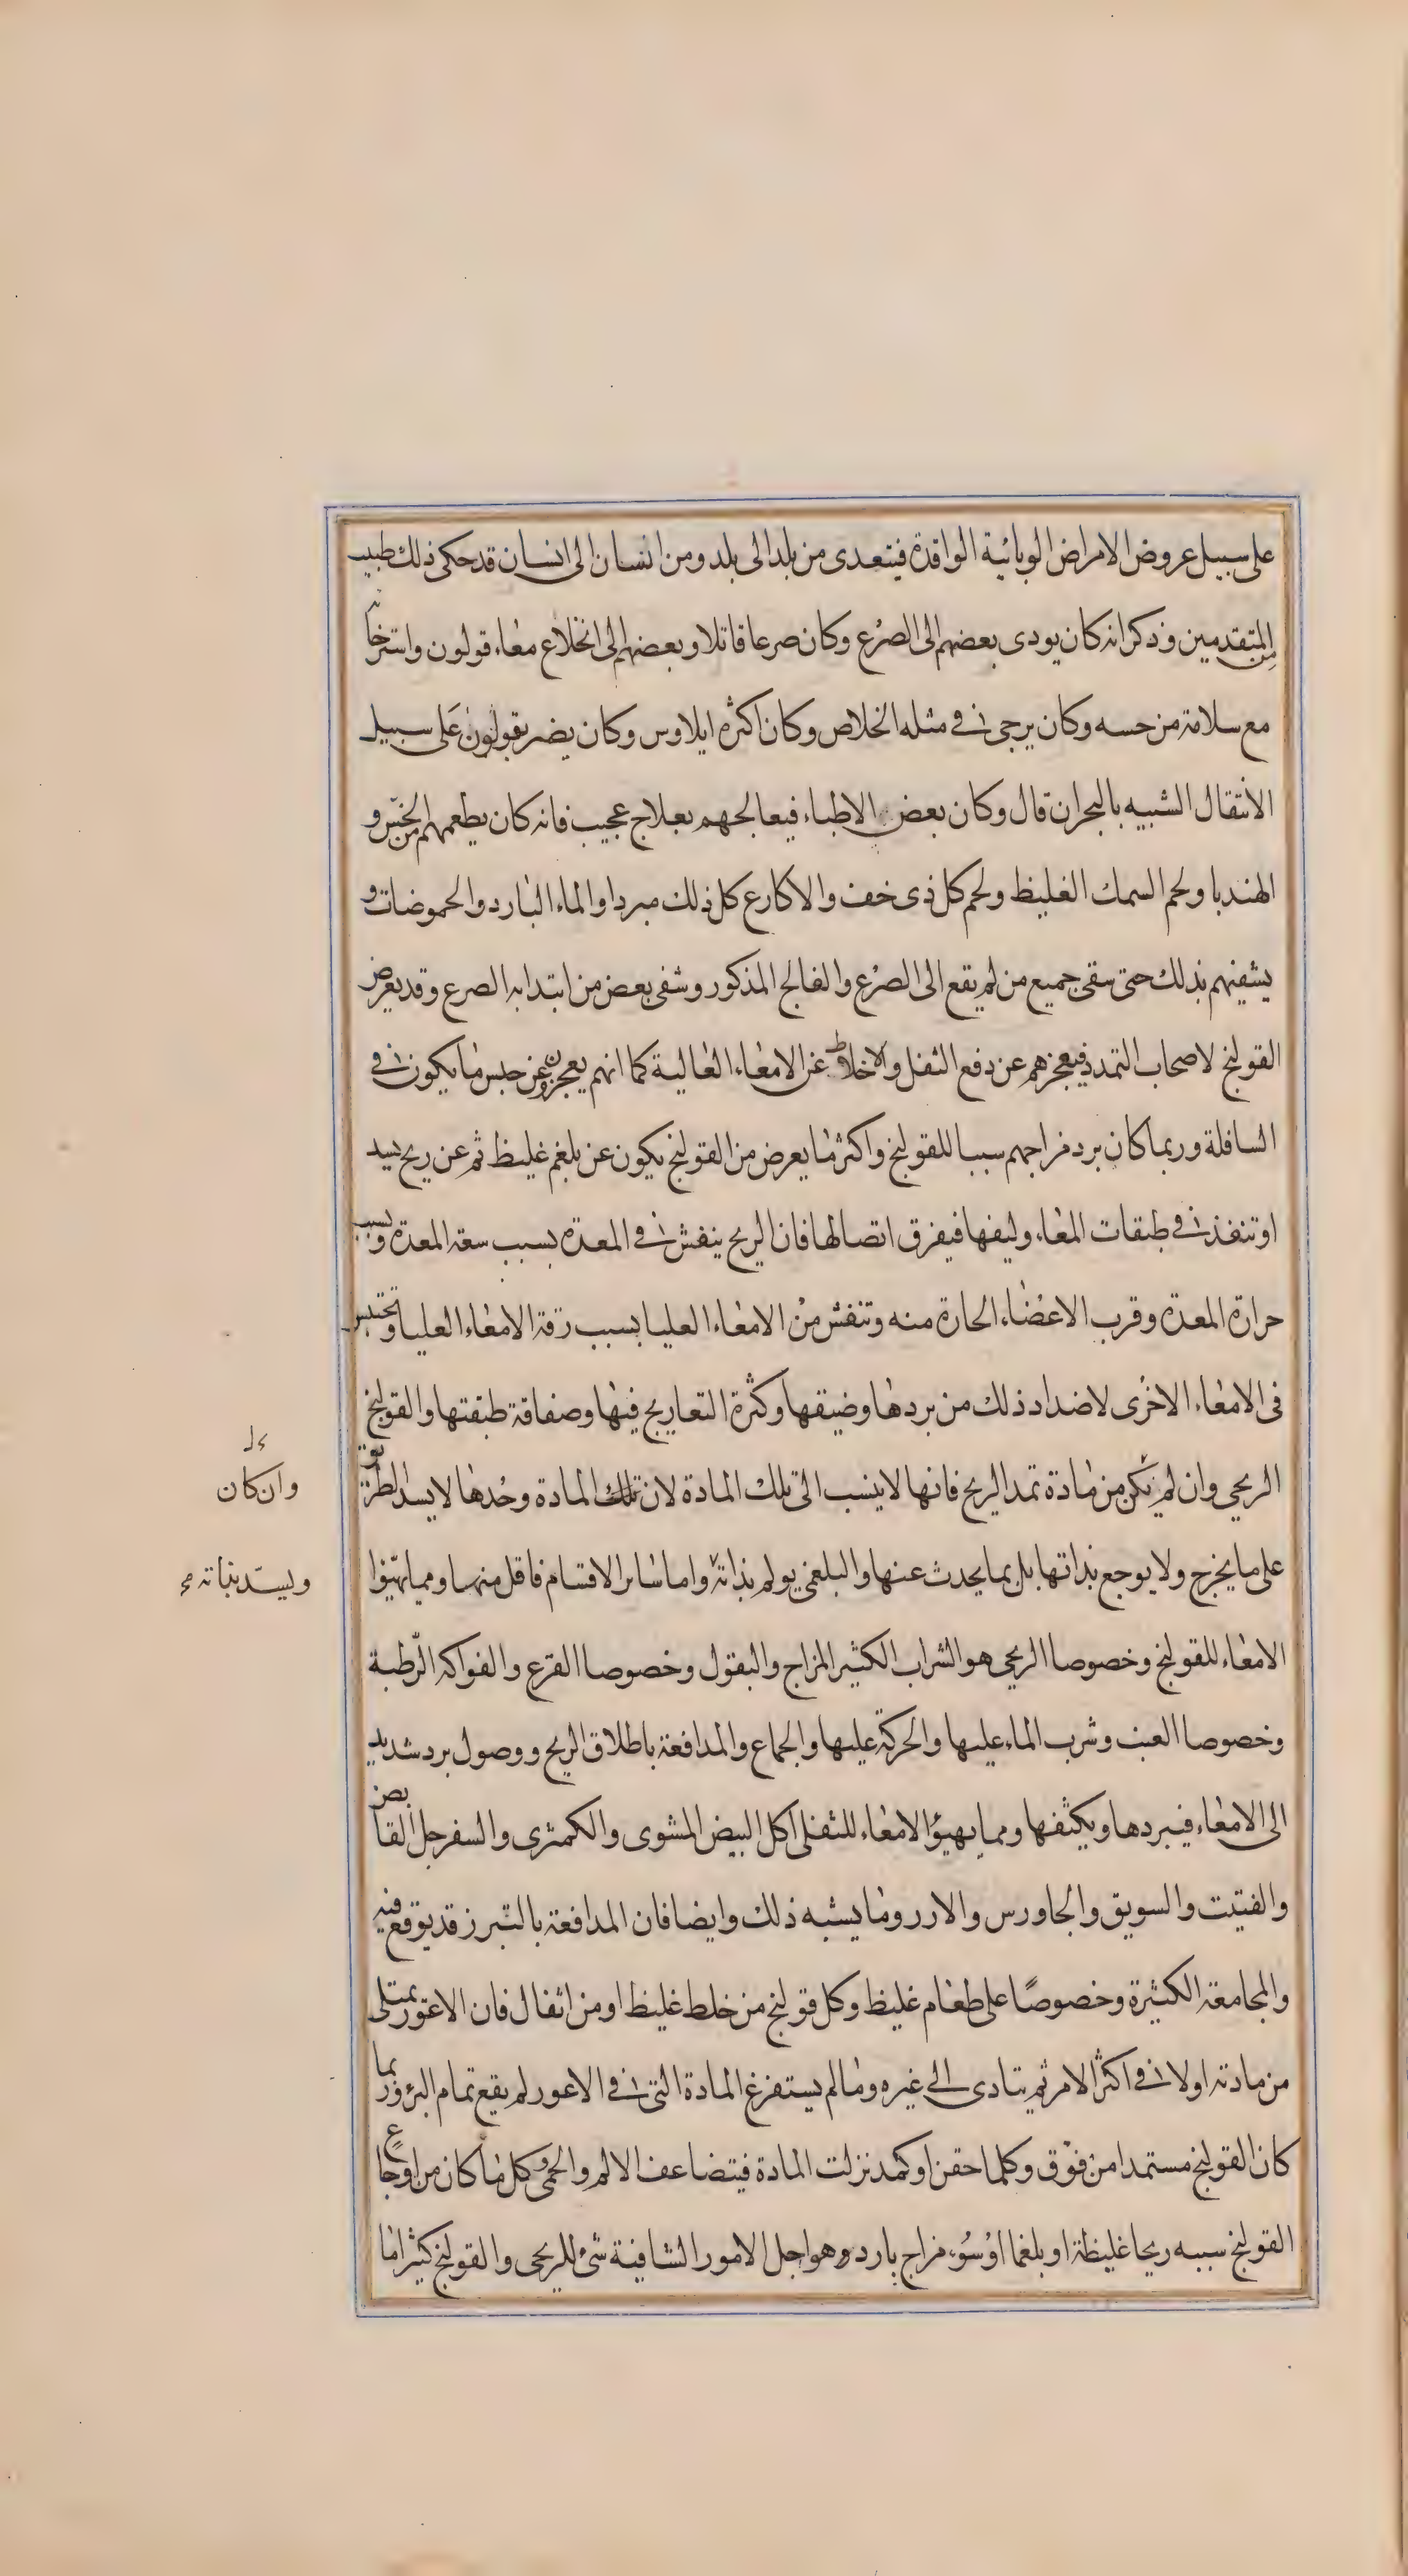 على سبيل عروض الامراض الوبائية الوافدة فيتعدى من بلد الى بلد ومن انسان الى انسان قد حكى ذلك طبيب
من المتقدمين وذكر انه كان يودى بعضهم الى الصرع وكان صرعا قاتلا وبعضهم الى انخلاع معاء قولون واسترخائه
مع سلامة من حسه وكان يرجى فى مثله الخلاص وكان اكثره ايلاوس وكان يضر بقولون على سبيل
الانتقال الشبيه بالبحران قال وكان بعض الاطباء فيعالجهم بعلاج عجيب فانه كان يطعمهم من الخس و
الهندبا ولحم السمك الغليظ ولحم كل ذى خف والاكارع كل ذلك مبردا والماء البارد والحموضات و
يشفيهم بذلك حتى سقى جميع من لم يقع الى الصرع والفالج المذكور وشفى بعض من ابتدا به الصرع وقد يعرض
القولنج لاصحاب التمدد فيعجزهم عن دفع الثفل والاخلاط عن الامعاء العالية كما انهم يعجزون عن حبس ما يكون فى
السافلة وربما كان برد مزاجهم سببا للقولنج واكثر ما يعرض من القولنج يكون عن بلغم غليظ ثم عن ريح يسد
او تنفذ فى طبقات المعاء وليفها فيفرق اتصالها فان الريح ينفش فى المعدة بسبب سعة المعدة وبسبب
حرارة المعدة وقرب الاعضاء الحارة منه وتنفش من الامعاء العليا بسبب رقة الامعاء العليا وتحتبس
فى الامعاء الاخرى لاضداد ذلك من بردها وضيقها وكثرة التعاريج فيها وصفاقة طبقتها والقولنج
الريحى وان لم يكن من مادة تمد الريح فانها لا ينسب الى تلك المادة لان تلك المادة وحدها لا يسد الطريق
على ما يخرج ولا يوجع بذاتها بل بما يحدث عنها والبلغمى يولم بذاته واما سائر الاقسام فاقل منهما ومما يهيؤا
الامعاء للقولنج وخصوصا الريحى هو الشراب الكثير المزاج والبقول وخصوصا القرع والفواكه الرطبة
وخصوصا العنب وشرب الماء عليها والحركة عليها والجماع والمدافعة باطلاق الريح ووصول برد شديد
الى الامعاء فيبردها ويكثفها ومما يهيؤ الامعاء للثفلى اكل البيض المشوى والكمثرى والسفرجل القابض
والفتيت والسويق والجاورس والارز وما يشبه ذلك وايضا فان المدافعة بالتبرز قد يوقع فيه
والمجامعة الكثيرة وخصوصًا على طعام غليظ وكل قولنج من خلط غليظ او من اثفال فان الاعور يمتلى
من مادته اولا فى اكثر الامر ثم يتادى الى غيره وما لم يستفرغ المادة التى فى الاعور لم يقع تمام البرؤ وربما
كان القولنج مستمدا من فوق وكلما حقن او كمد نزلت المادة فيتضاعف الالم والحمى وكل ما كان من اوجاع
القولنج سببه ريحا غليظة او بلغما او سوء مزاج بارد وهو اجل الامور الشافية شئ للريحى والقولنج كثيرا ما
وان كان
ويسد بذاته